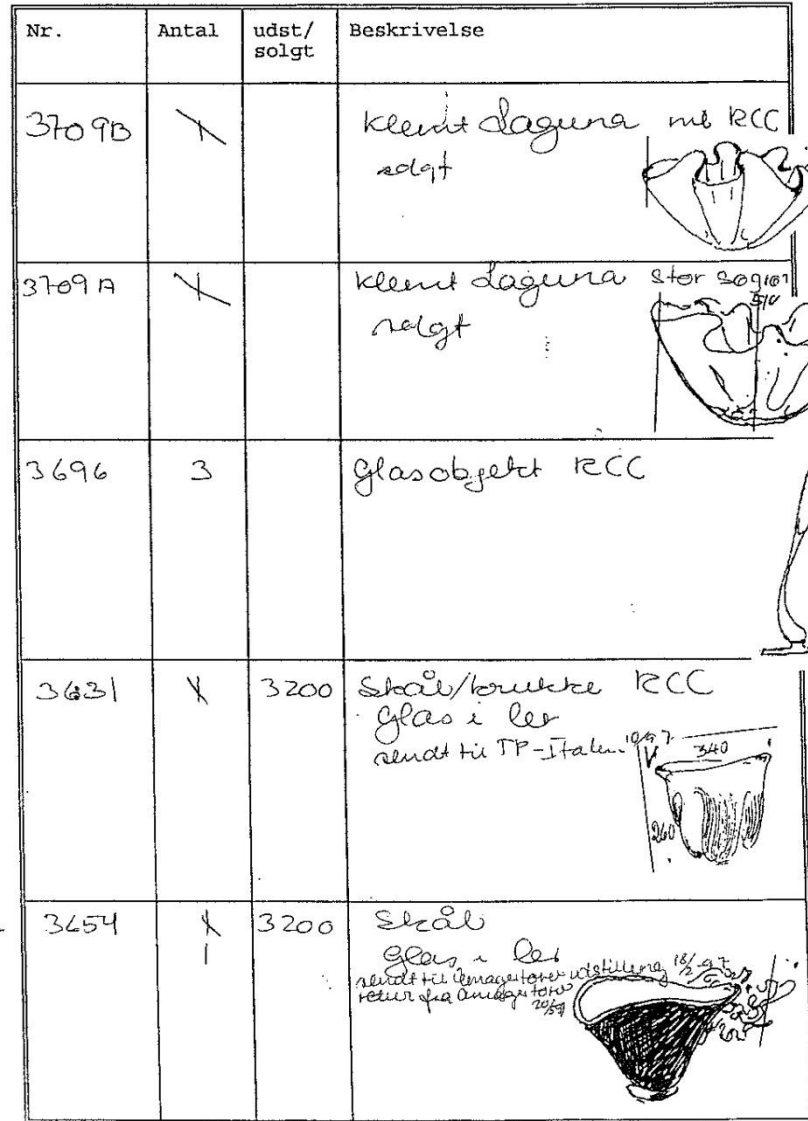 Nr. Antal udst/ Beskrivelse
solgt
3709B 1 Klemt Laguna ml RCC
solgt
3709A 1 Klemt Laguna Stor
solgt
3696 3 Glasobjekt RCC
3631 1 3200 Skål/krukke RCC
Glas i ler
sendt til TP-Italien
340
260
3654 1 3200 Skål
1 Glas i ler
sendt til Amagertorv udstilling 18/2 97
retur fra Amagertorv